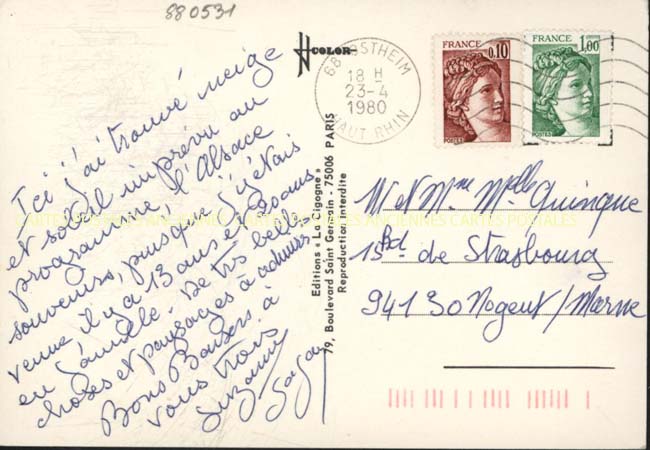 880531
COLOR
68 OSTHEIM
18 H
23-4
1980
HAUT RHIN
FRANCE
0,10
POSTES
FRANCE
1,00
POSTES
Ici j'ai trouvé neige
et soleil imprévu au
programme, l'Alsace
souvenirs, puisque j'étais
venue il y a 13 ans et 20 ans
en famille. De très belles
choses et paysages à admirer
Bons Baisers à
vous trois
Suzanne
Editions « La Cigogne »
79, Boulevard Saint Germain - 75006 PARIS
Reproduction interdite
M et Mme Melle Quinque
15 Bd de Strasbourg
94130 Nogent/Marne
CARTES POSTALES ANCIENNES CARTES POSTALES